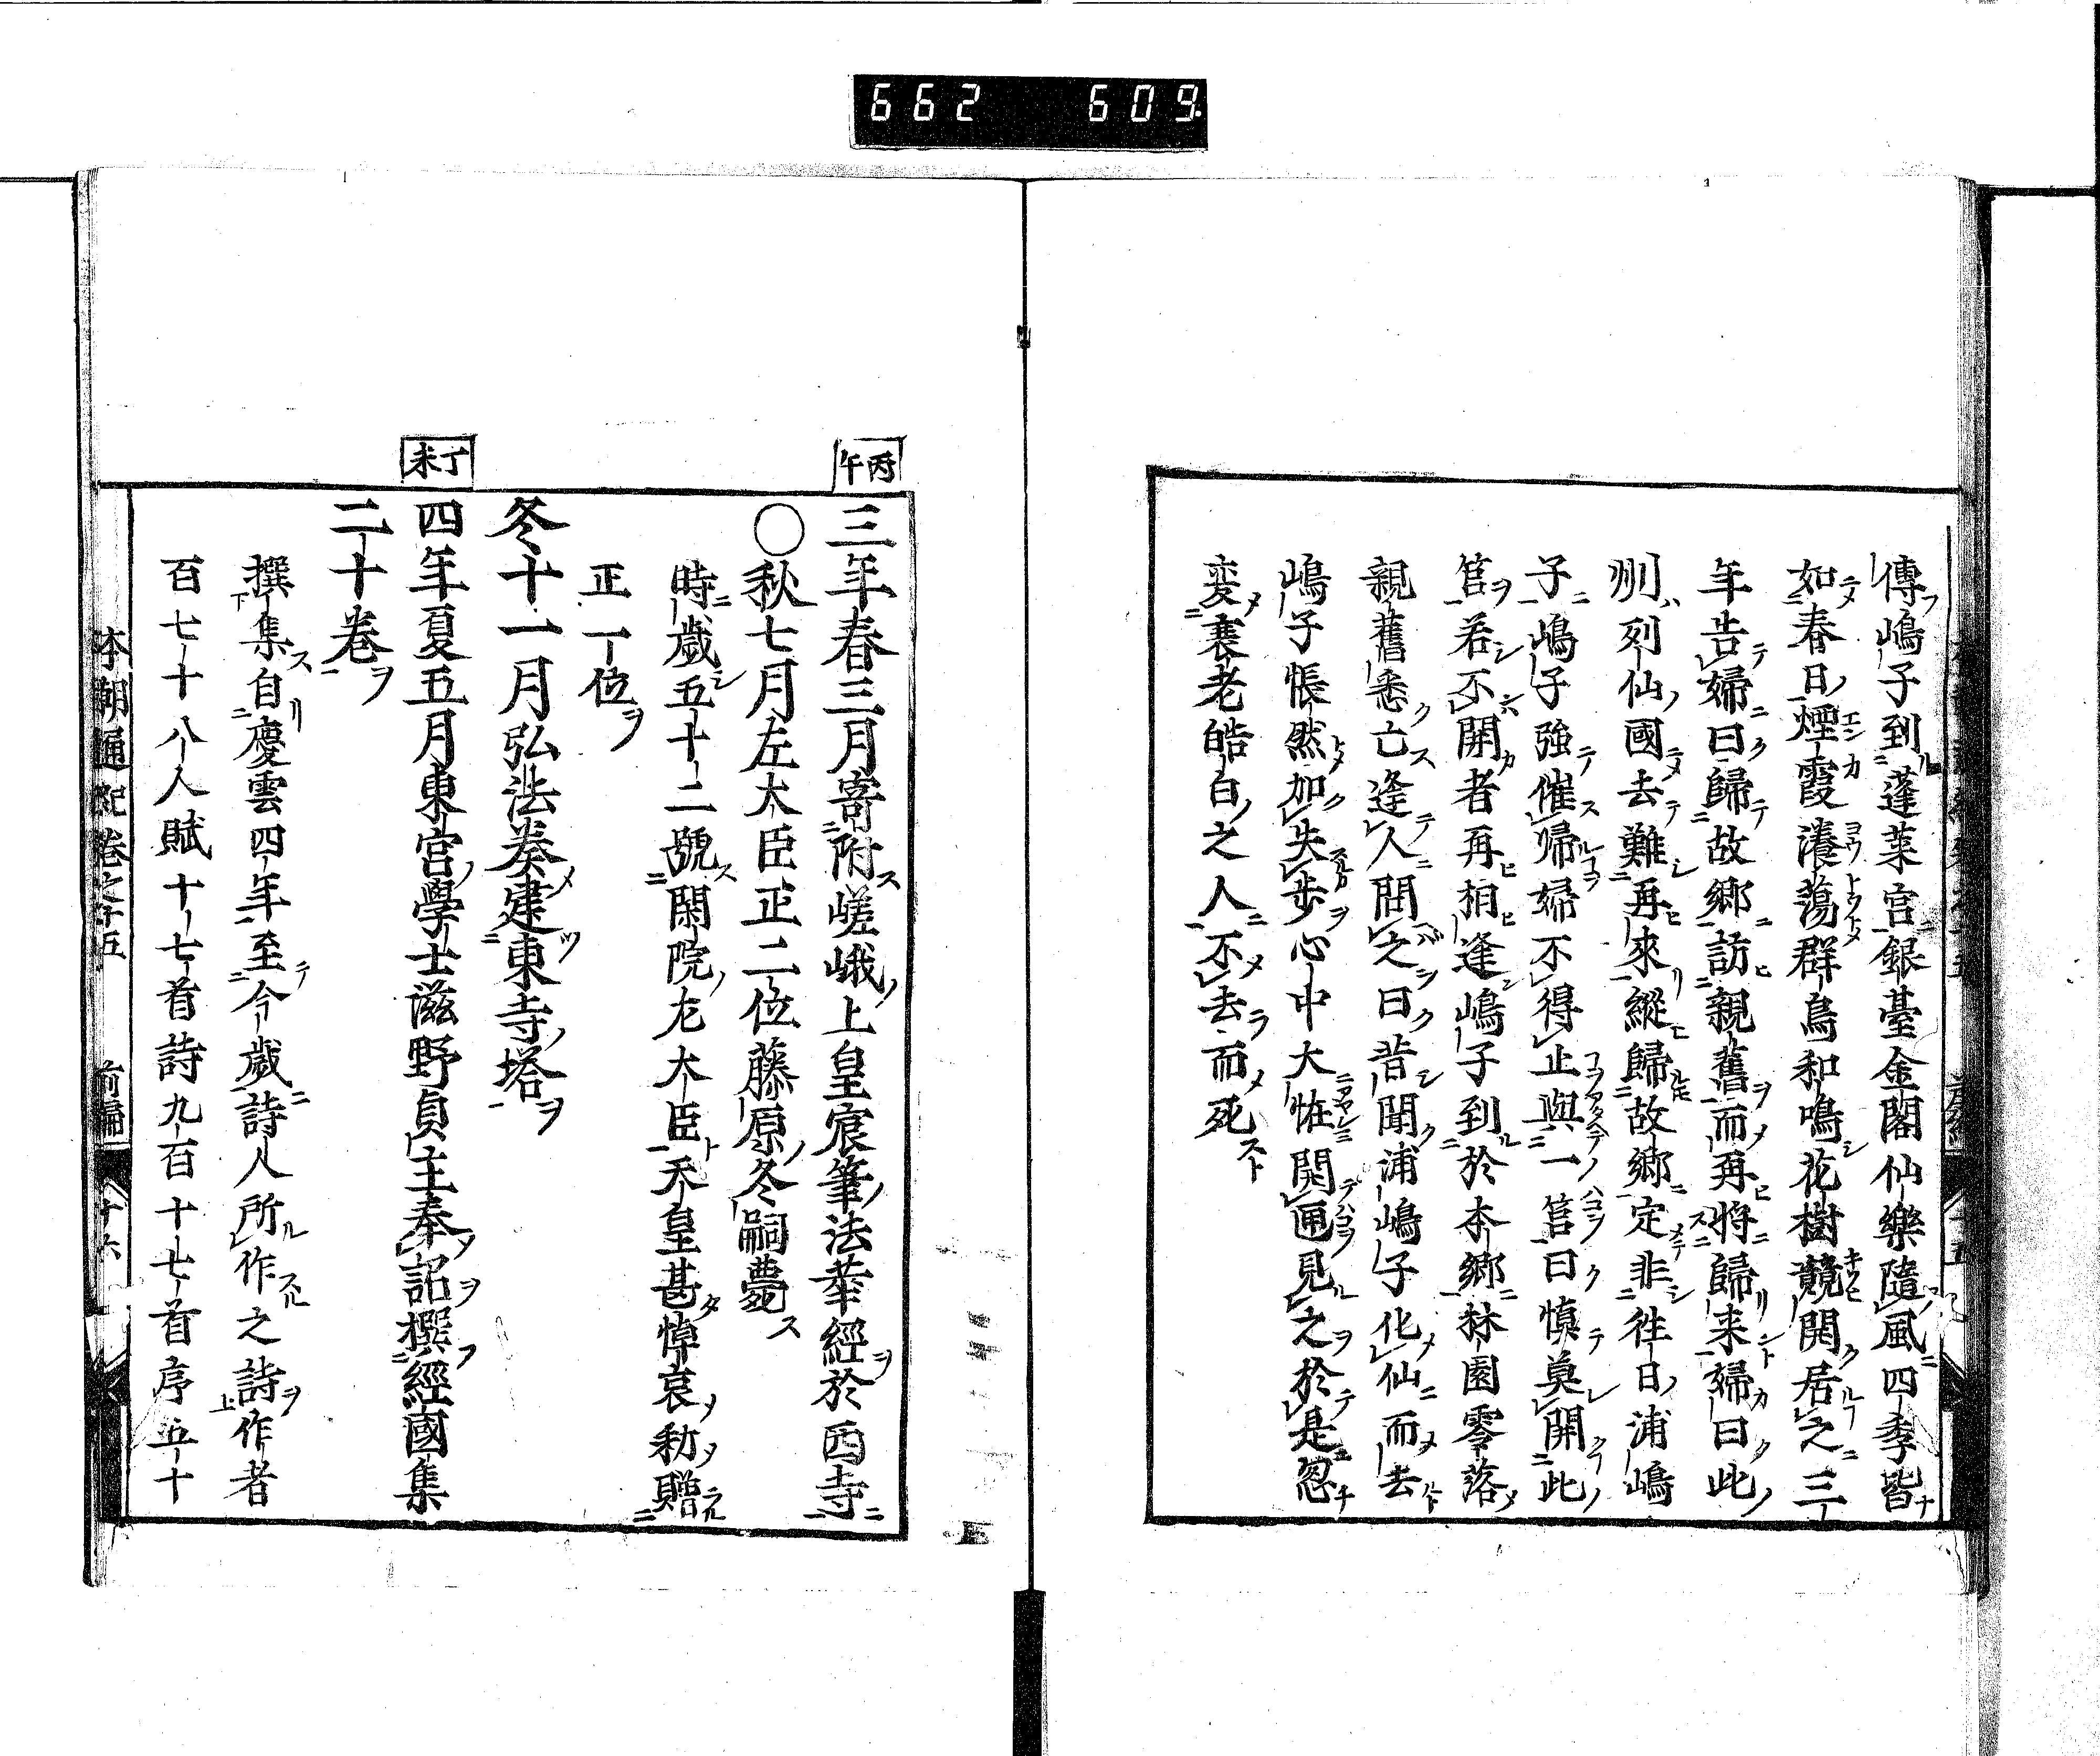 662 609
傳嶋子到蓬莱宮銀臺金閣仙樂隨風四季皆
如春日煙霞濛蕩群鳥和鳴花樹競開居之三
年告婦曰歸故郷訪親舊而再将歸来婦曰此
別列仙國去難再來縱歸故郷定非徃日浦嶋
子嶋子強催帰婦不得止與一筥曰慎莫開此
筥若不開者再相逢嶋子到於本郷林園零落
親舊悉亡逢人問之曰昔聞浦嶋子化仙而去
嶋子悵然加失步心中大恠開匣見之於是忽
変衰老皓白之人不去而死
丙午
三年春三月寄附嵯峨上皇宸筆法華經於西寺
〇秋七月左大臣正二位藤原冬嗣薨
時歳五十二號閑院左大臣天皇甚悼哀勅贈
正一位
冬十一月弘法奏建東寺塔
丁未
四年夏五月東宮學士滋野貞主奉詔撰經國集
二十卷
撰集自慶雲四年至今歲詩人所作之詩作者
百七十八人賦十七首詩九百十七首序五十
本朝通紀卷之十五 前編 十六